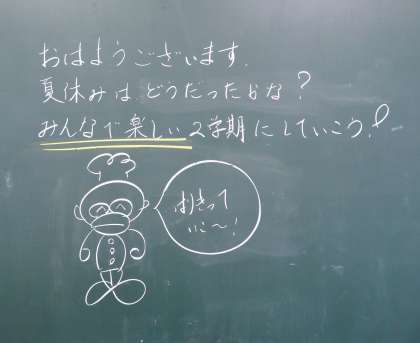 おはようございます.
夏休みは、どうだったかな?
みんなで楽しい2学期にしていこう!
はりきって
いこ〜!